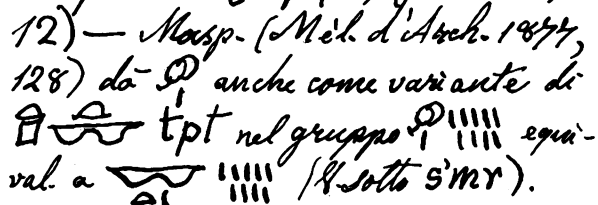 12) — Masp. (Mél. d'Arch. 1877,
128) dà anche come variante di
tpt nel gruppo equi-
val. a (V. sotto s'mr).